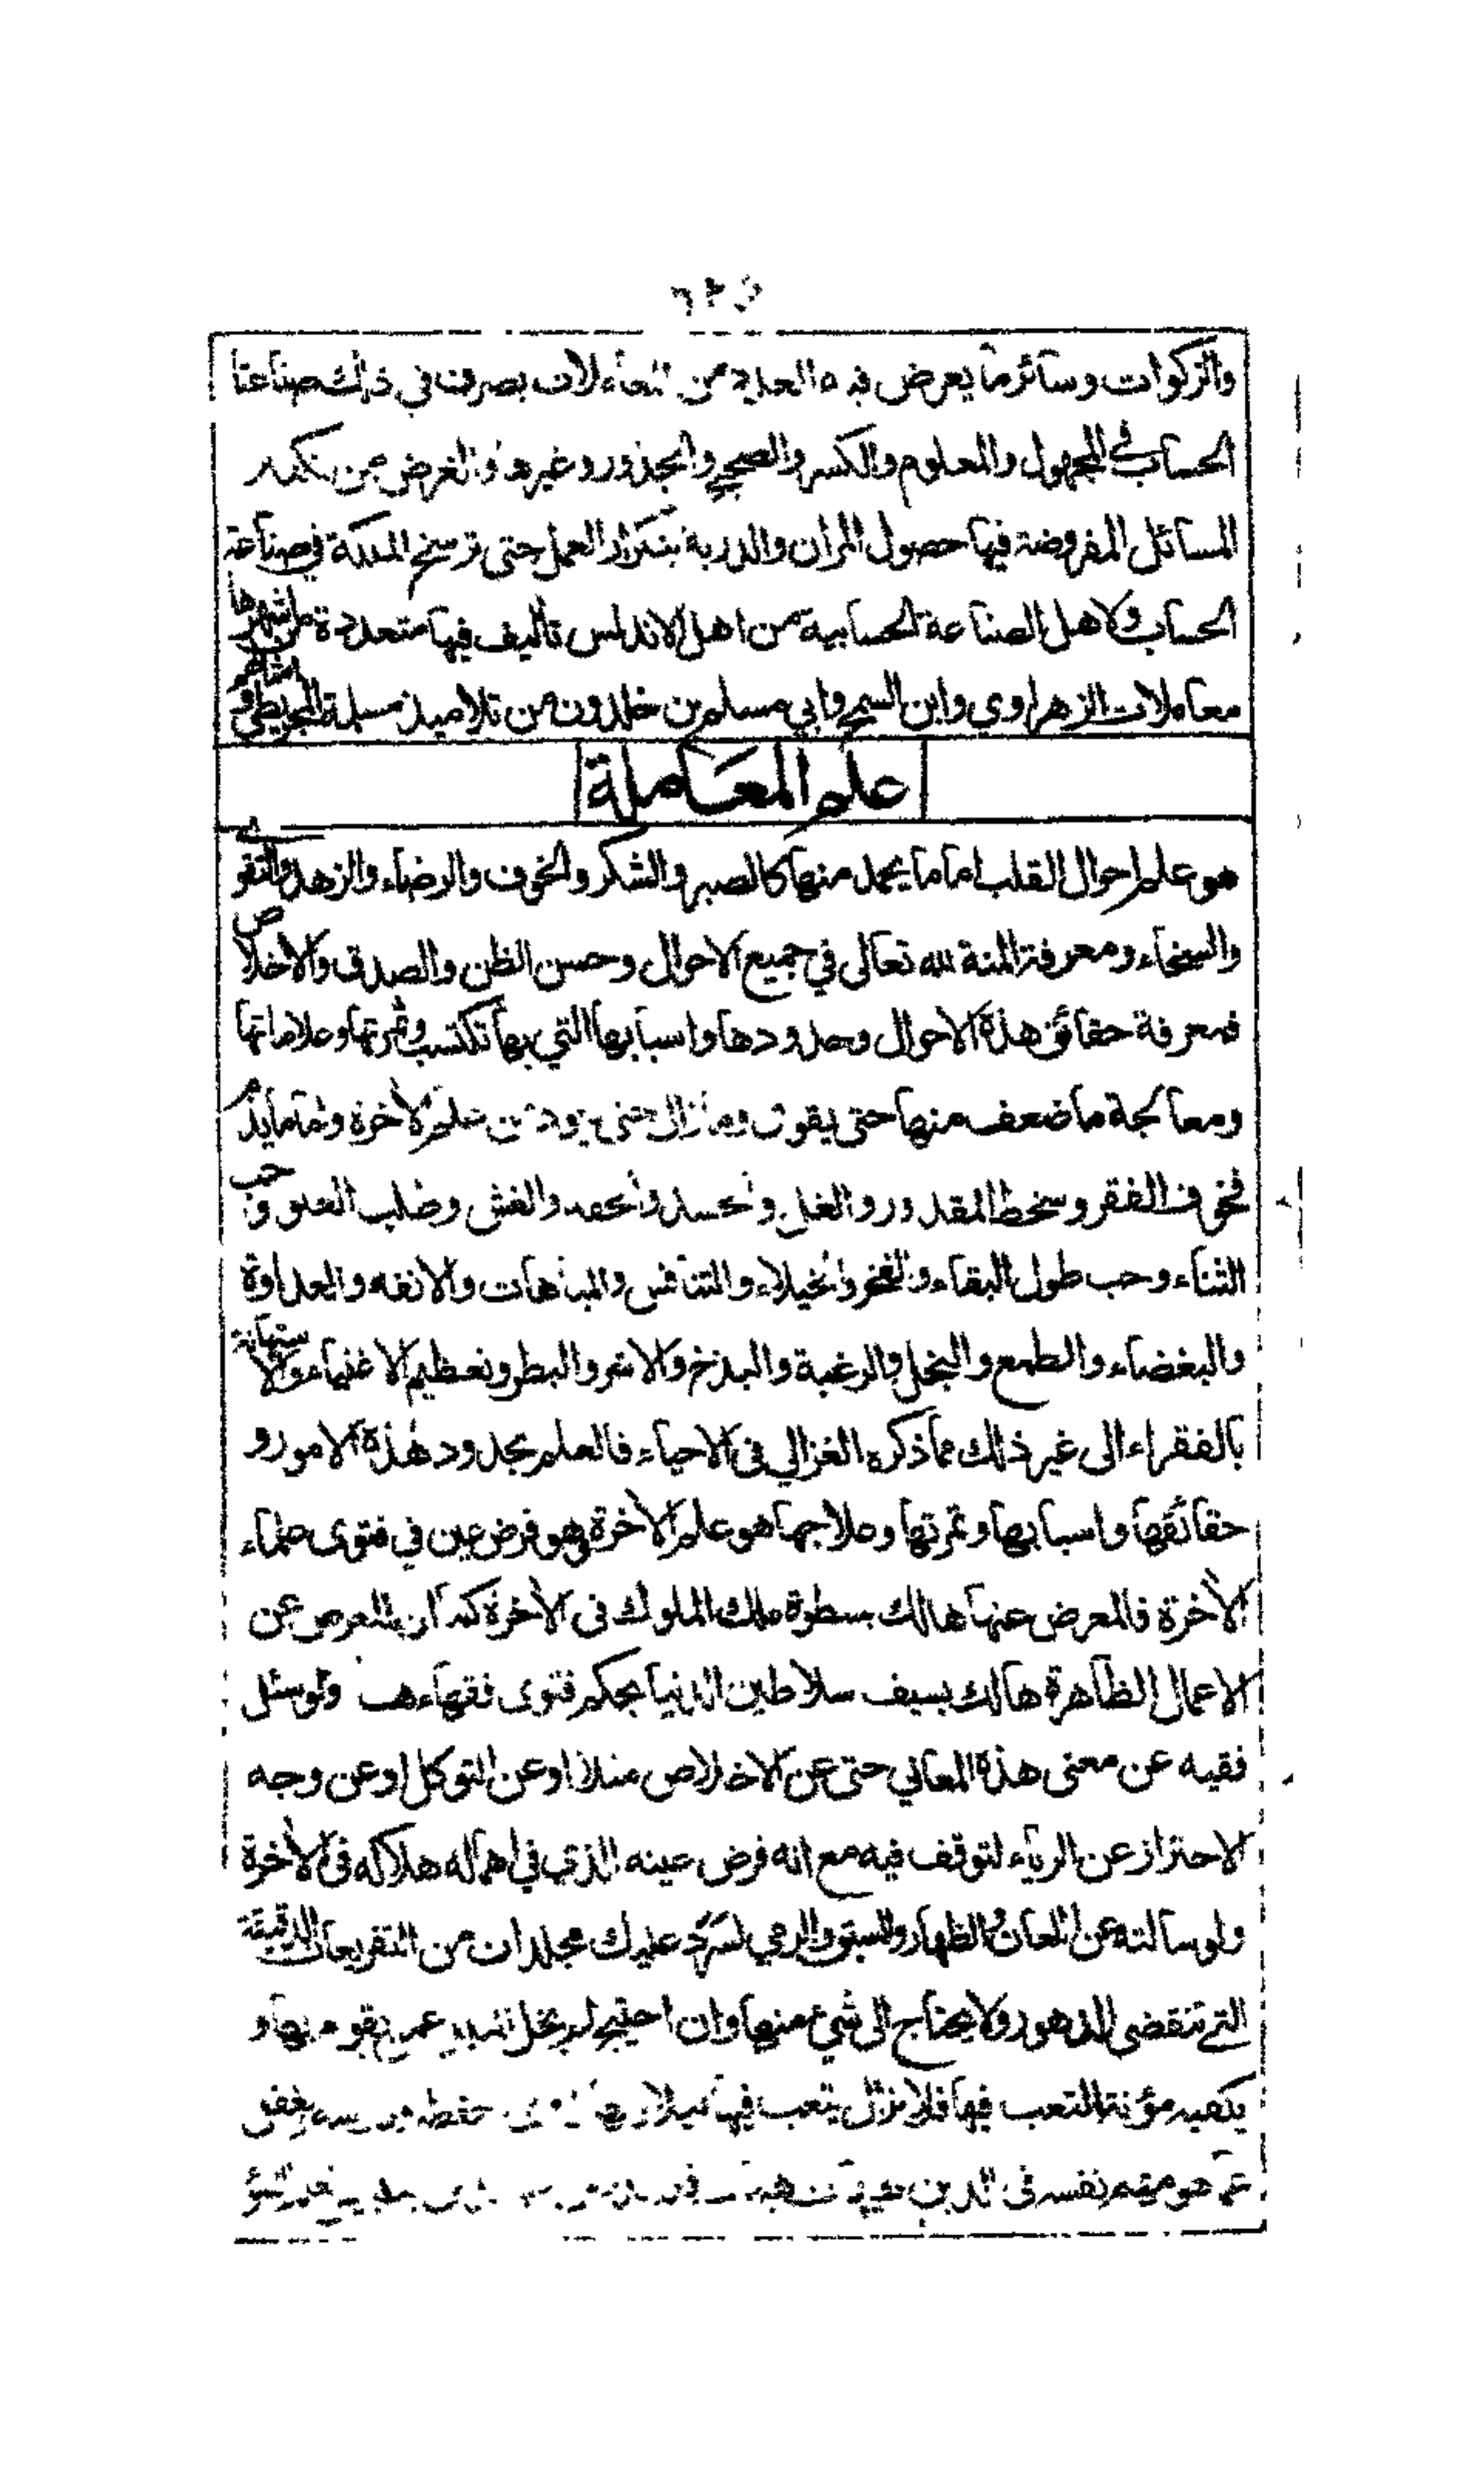 والزكوات وسائر ما يعرض فيه العدد من المعاملات يصرف في ذلك صناعتا
الحساب في المجهول والمعلوم والكسر والصحيح والجذور وغيرها والغرض من تكثير
المسائل المفروضة فيها حصول المران والدربة بتكرار العمل حتى ترسخ الملكة في صناعة
الحساب ولاهل الصناعة الحسابية من اهل الاندلس تأليف فيها متعددة من اشهرها
معاملات الزهراوي وابن السمح وابي مسلم بن خلدون من تلاميذ مسلمة المجريطي وامثالهم
علم المعاملة
هو علم احوال القلب اما ما يحمد منها كالصبر والشكر والخوف والرضاء والزهد والتقوى
والسخاء ومعرفة المنة لله تعالى في جميع الاحوال وحسن الظن والصدق والاخلاص
فمعرفة حقائق هذه الاحوال وحدودها واسبابها التي بها تكتسب وثمرتها وعلاماتها
ومعالجة ما ضعف منها حتى يقوى وما زال حتى يعود من علم الآخرة واما ما يذم
فخوف الفقر وسخط المقدور والغل والحسد والحقد والغش وطلب العلو وحب
الثناء وحب طول البقاء والفخر والخيلاء والتنافس والمباهات والانفه والعداوة
والبغضاء والطمع والبخل والرغبة والبذخ والاشر والبطر وتعظيم الاغنياء والاستهانة
بالفقراء الى غير ذلك مما ذكره الغزالي في الاحياء فالعلم بحدود هذه الامور و
حقائقها واسبابها وثمرتها وعلاجها هو علم الآخرة وهو فرض عين في فتوى علماء
الآخرة فالمعرض عنها هالك بسطوة ملك الملوك في الآخرة كما ان المعرض عن
الاعمال الظاهرة هالك بسيف سلاطين الدنيا بحكم فتوى فقهاء ولو سئل
فقيه عن معنى هذه المعاني حتى عن الاخلاص مثلا او عن التوكل او عن وجه
الاحتراز عن الرياء لتوقف فيه مع انه فرض عينه الذي في اهماله هلاكه في الآخرة
ولو سألته عن اللعان والظهار والسبق والرمي لسرد عليك مجلدات من التفريعات الدقيقة
التي تنقضي الدهور ولا يحتاج الى شيء منها وان احتيج لم يخل البلد عمن يقوم بها و
يكفيه مؤنة التعب فيها فلا يزال يتعب فيها ليلا ونهارا وفي حفظه ودرسه ويغفل
عما هو مهم نفسه في الدين